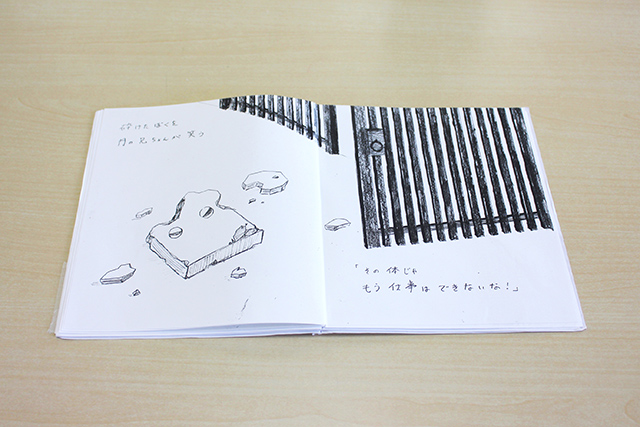 砕けたぼくを
門の兄ちゃんが笑う
「その体じゃ
もう仕事はできないな!」